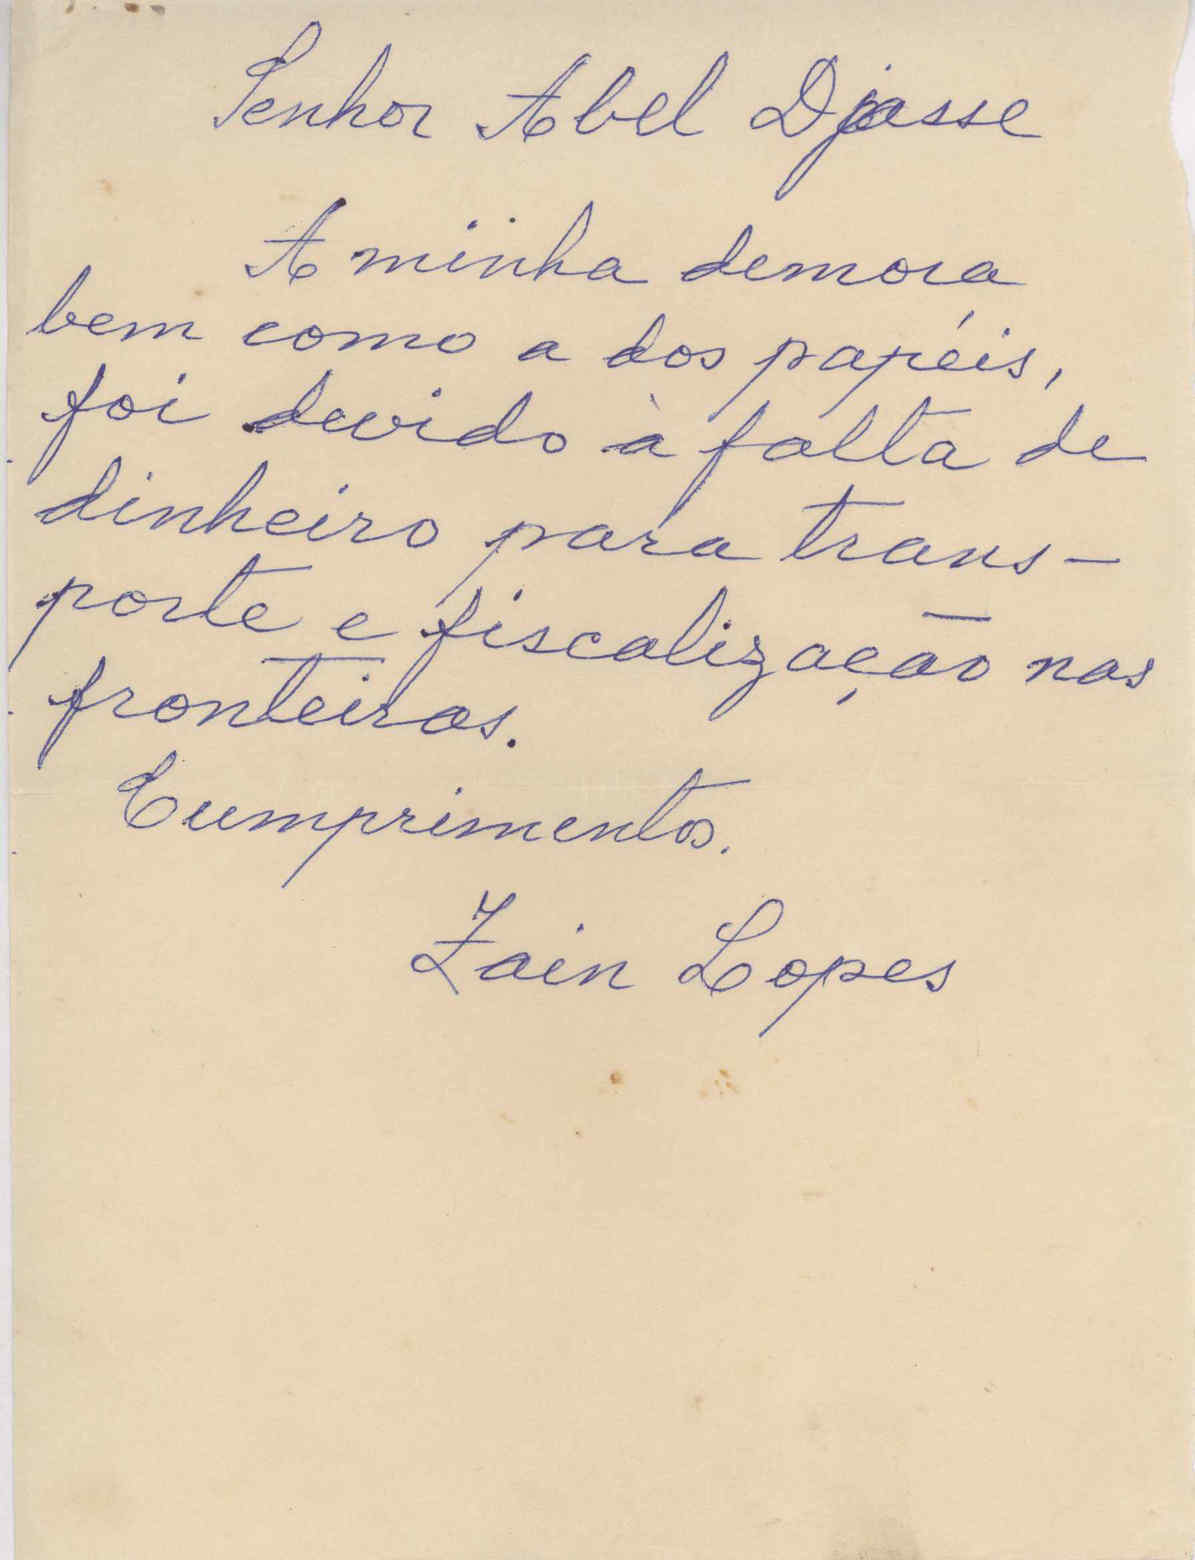 Senhor Abel Djasse
A minha demora
bem como a dos papéis,
foi devido à falta de
dinheiro para trans-
porte e fiscalização nas
fronteiras.
Cumprimentos.
Zain Lopes